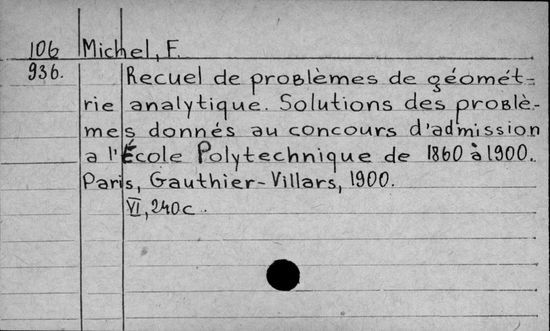 106 Michel, F.
936. Recuel de problèmes de géomét=
rie analytique. Solutions des problè-
mes donnés au concours d'admission
a l'École Polytechnique de 1860 à 1900.
Paris, Gauthier-Villars, 1900.
VI, 240c.